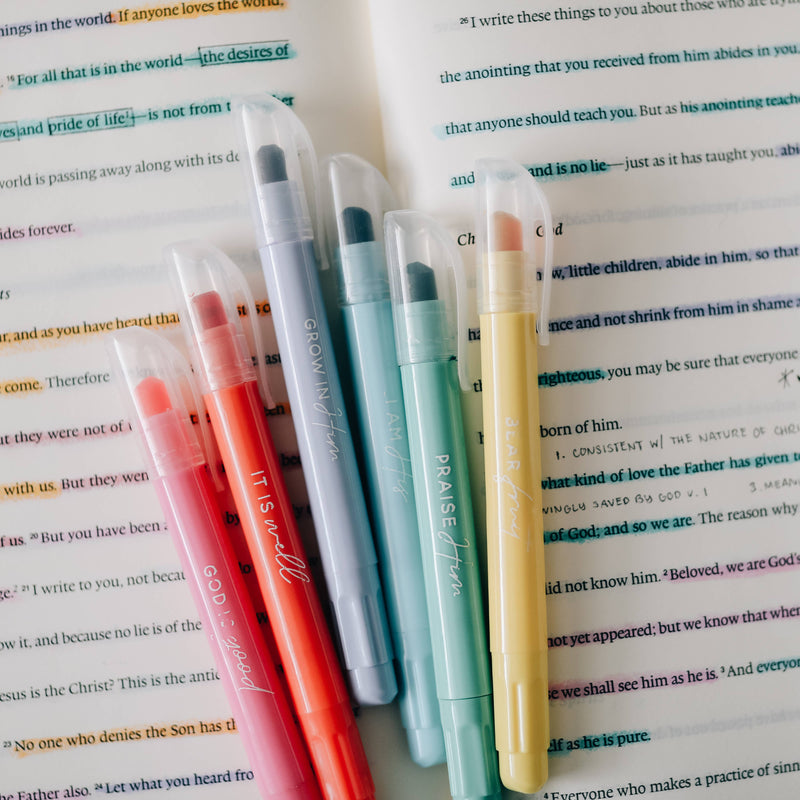 things in the world. If anyone loves the world,
15 For all that is in the world—the desires of
and pride of life—is not from
world is passing away along with its
forever.
and as you have heard that
come. Therefore
they were not of
with us. But they
us. 20 But you have been
21 I write to you, not
it, and because no lie is of the
Jesus is the Christ? This is the
23 No one who denies the Son has
Father also. 24 Let what you heard
26 I write these things to you about those who are
the anointing that you received from him abides in you,
that anyone should teach you. But as his anointing
and is no lie—just as it has taught you,
God
little children, abide in him, so that
and not shrink from him in shame
righteous, you may be sure that everyone
born of him.
1. CONSISTENT W/ THE NATURE OF
what kind of love the Father has given
SAVED BY GOD V. 1 3.
of God; and so we are. The reason why
did not know him. 2 Beloved, we are God's
not yet appeared; but we know that when
we shall see him as he is. 3 And
as he is pure.
4 Everyone who makes a practice of
GOD is good
IT IS well
GROW IN Him
I AM His
PRAISE Him
BEAR fruit